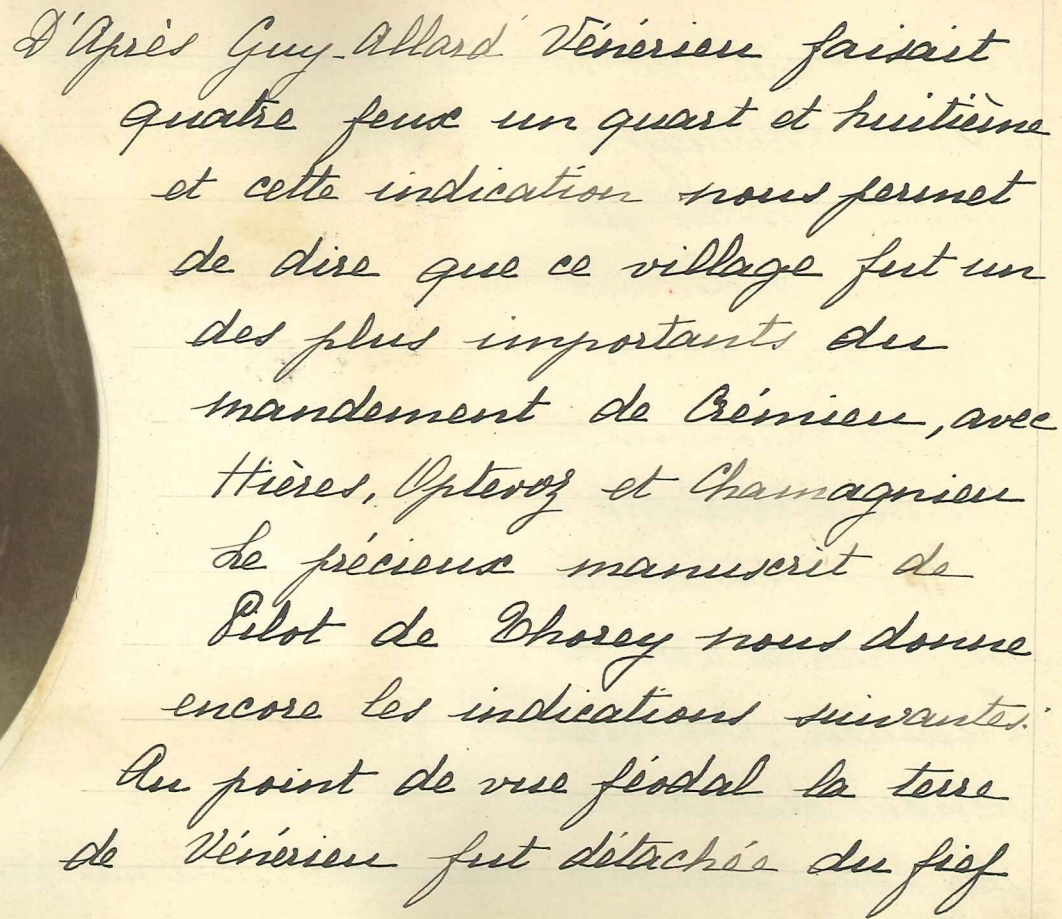 D'Après Guy-Allard Vénérieu faisait
quatre feux un quart et huitième
et cette indication nous permet
de dire que ce village fut un
des plus importants du
mandement de Crémieu, avec
Hières, Optevoz et Chamagnieu
Le précieux manuscrit de
Pilot de Thorey nous donne
encore les indications suivantes:
Au point de vue féodal la terre
de Vénérieu fut détachée du fief